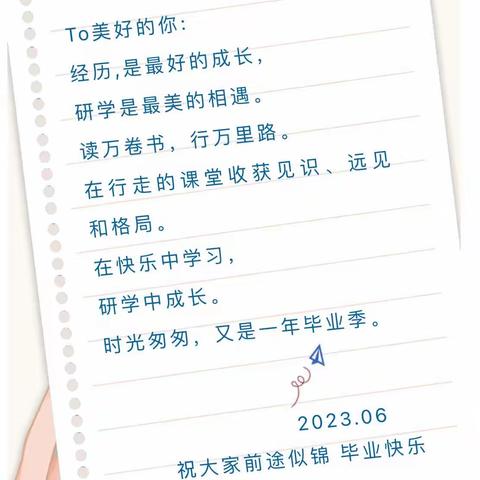 To美好的你:
经历,是最好的成长，
研学是最美的相遇。
读万卷书，行万里路。
在行走的课堂收获见识、远见
和格局。
在快乐中学习，
研学中成长。
时光匆匆，又是一年毕业季。
2023.06
祝大家前途似锦 毕业快乐